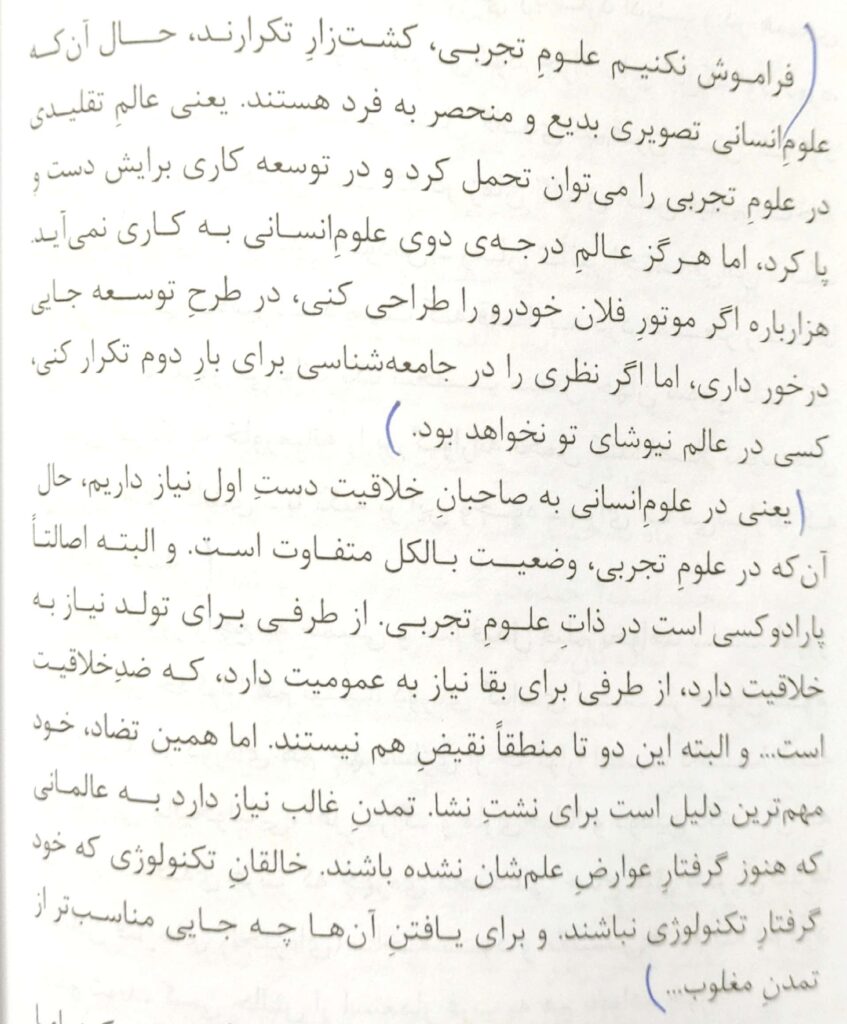 فراموش نکنیم علومِ تجربی، کشت‌زارِ تکرارند، حال آن‌که
علومِ‌انسانی تصویری بدیع و منحصر به فرد هستند. یعنی عالمِ تقلیدی
در علومِ تجربی را می‌توان تحمل کرد و در توسعه کاری برایش دست و
پا کرد، اما هرگز عالمِ درجه‌ی دوی علومِ‌انسانی به کاری نمی‌آید.
هزارباره اگر موتورِ فلان خودرو را طراحی کنی، در طرحِ توسعه جایی
درخور داری، اما اگر نظری را در جامعه‌شناسی برای بارِ دوم تکرار کنی،
کسی در عالم نیوشای تو نخواهد بود.
یعنی در علومِ‌انسانی به صاحبانِ خلاقیت دستِ اول نیاز داریم، حال
آن‌که در علومِ تجربی، وضعیت بالکل متفاوت است. و البته اصالتاً
پارادوکسی است در ذاتِ علومِ تجربی. از طرفی برای تولد نیاز به
خلاقیت دارد، از طرفی برای بقا نیاز به عمومیت دارد، که ضدِخلاقیت
است... و البته این دو تا منطقاً نقیضِ هم نیستند. اما همین تضاد، خود
مهم‌ترین دلیل است برای نشتِ نشا. تمدنِ غالب نیاز دارد به عالمانی
که هنوز گرفتارِ عوارضِ علم‌شان نشده باشند. خالقانِ تکنولوژی که خود
گرفتارِ تکنولوژی نباشند. و برای یافتنِ آن‌ها چه جایی مناسب‌تر از
تمدنِ مغلوب...